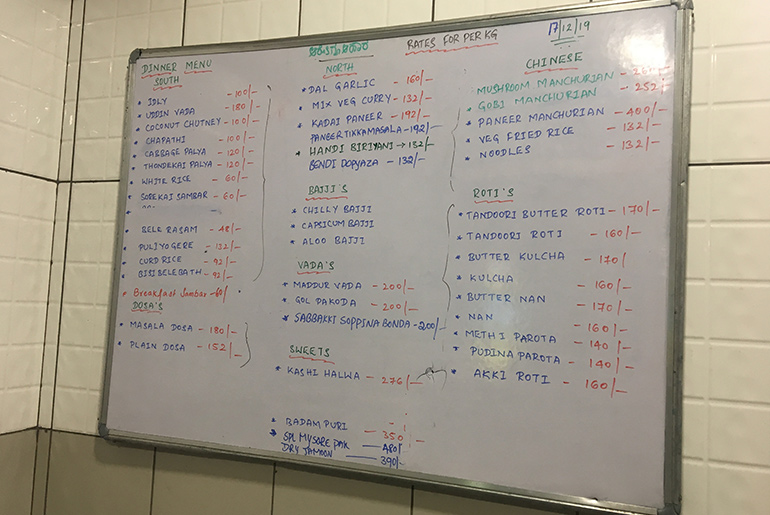 RATES FOR PER KG
17/12/19
DINNER MENU
SOUTH
* IDLY - 100/-
* UDDIN VADA - 180/-
* COCONUT CHUTNEY - 100/-
* CHAPATHI - 100/-
* CABBAGE PALYA - 120/-
* THONDEKAI PALYA - 120/-
* WHITE RICE - 60/-
* SOREKAI SAMBAR - 60/-
* BELE RASAM - 48/-
* PULIYOGERE - 132/-
* CURD RICE - 92/-
* BISIBELEBATH - 92/-
* Breakfast Sambar - 60/-
DOSA'S
* MASALA DOSA - 180/-
* PLAIN DOSA - 152/-
NORTH
* DAL GARLIC - 160/-
* MIX VEG CURRY - 132/-
* KADAI PANEER - 192/-
PANEER TIKKAMASALA - 192/-
* HANDI BIRIYANI → 132/-
BENDI DOPYAZA - 132/-
BAJJI'S
* CHILLY BAJJI
* CAPSICUM BAJJI
* ALOO BAJJI
VADA'S
* MADDUR VADA - 200/-
* GOL PAKODA - 200/-
* SABBAKKI SOPPINA BONDA - 200/-
SWEETS
* KASHI HALWA - 276/-
* BADAM PURI - 350/-
* SPL MYSORE PAK - 480/-
DRY JAMOON - 390/-
CHINESE
MUSHROOM MANCHURIAN
* GOBI MANCHURIAN - 252/-
* PANEER MANCHURIAN - 400/-
* VEG FRIED RICE - 132/-
* NOODLES - 132/-
ROTI'S
* TANDOORI BUTTER ROTI - 170/-
* TANDOORI ROTI - 160/-
* BUTTER KULCHA - 170/
* KULCHA - 160/-
* BUTTER NAN - 170/-
* NAN - 160/-
* METHI PAROTA - 140/-
* PUDINA PAROTA - 140/-
* AKKI ROTI - 160/-